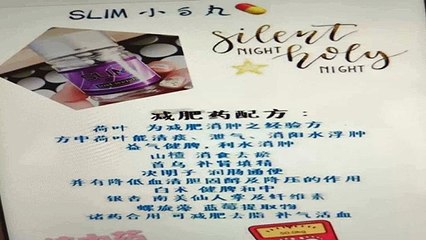 SLIM 小S丸
silent
NIGHT
holy
NIGHT
减肥药配方：
荷叶 为减肥消肿之经验方
方中荷叶能清痰、泄气、消阳水浮肿
益气健脾，利水消肿
山楂 消食去瘀
首乌 补肾填精
决明子 润肠通便
并有降低血清胆固醇及降压的作用
白术 健脾和中
银杏 南美仙人掌及纤维素
螺旋藻 蓝莓提取物
诸药合用 可减肥去脂 补气活血